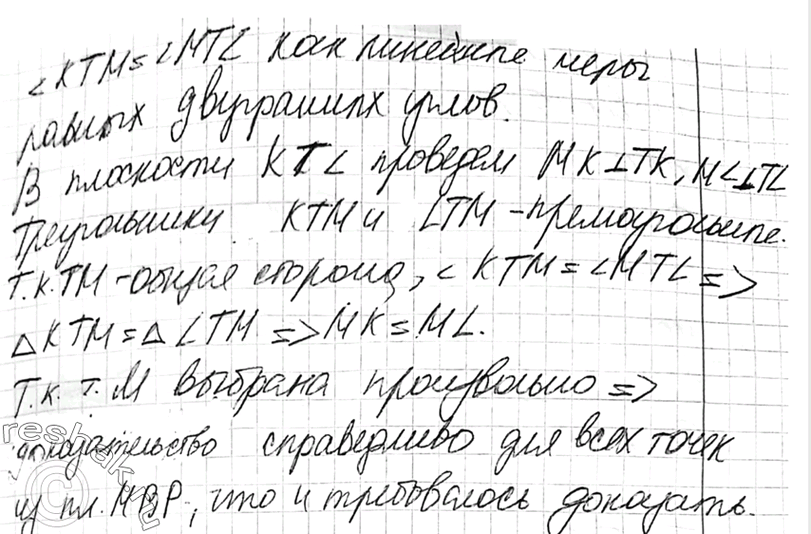 ∠KTM = ∠MTL как линейные меры
равных двугранных углов.
В плоскости KTL проведем MK⊥TK, ML⊥TL
Треугольники KTM и LTM - прямоугольные.
Т.к. TM - общая сторона, ∠KTM = ∠MTL =>
△KTM = △LTM => MK = ML.
Т.к. т. M выбрана произвольно =>
доказательство справедливо для всех точек
из пл. MBP, что и требовалось доказать.
reshak.ru